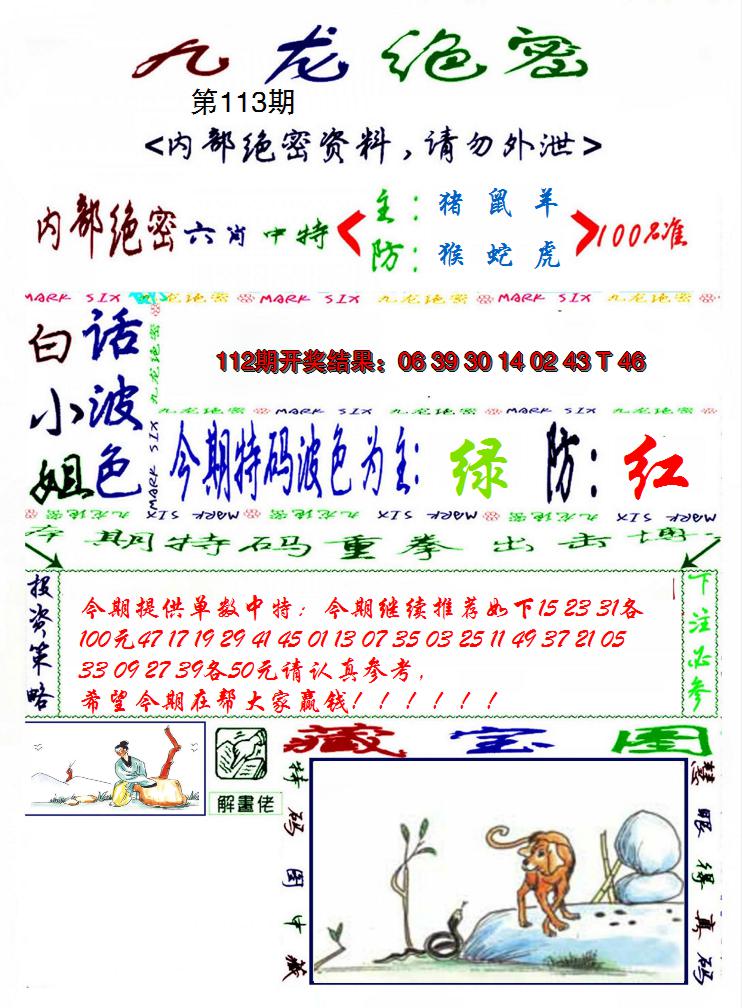 九龙绝密
第113期
<内部绝密资料,请勿外泄>
内部绝密六肖中特
主:猪 鼠 羊
防:猴 蛇 虎
100%准
MARK SIX 九龙绝密 MARK SIX 九龙绝密 MARK SIX 九龙绝密
九龙绝密 MARK SIX
白小姐
话波色
112期开奖结果：06 39 30 14 02 43 T 46
九龙绝密 MARK SIX 九龙绝密 MARK SIX 九龙绝密
今期特码波色为主:绿 防:红
MARK SIX 九龙绝密 MARK SIX 九龙绝密 MARK SIX 九龙绝密 MARK SIX
本期特码重拳出击博
投资策略
今期提供单数中特：今期继续推荐如下15 23 31各
100元47 17 19 29 41 45 01 13 07 35 03 25 11 49 37 21 05
33 09 27 39各50元请认真参考,
希望今期在帮大家赢钱！！！！！！
下注必参
解畫佬
藏宝图
特码图中藏
慧眼得真码